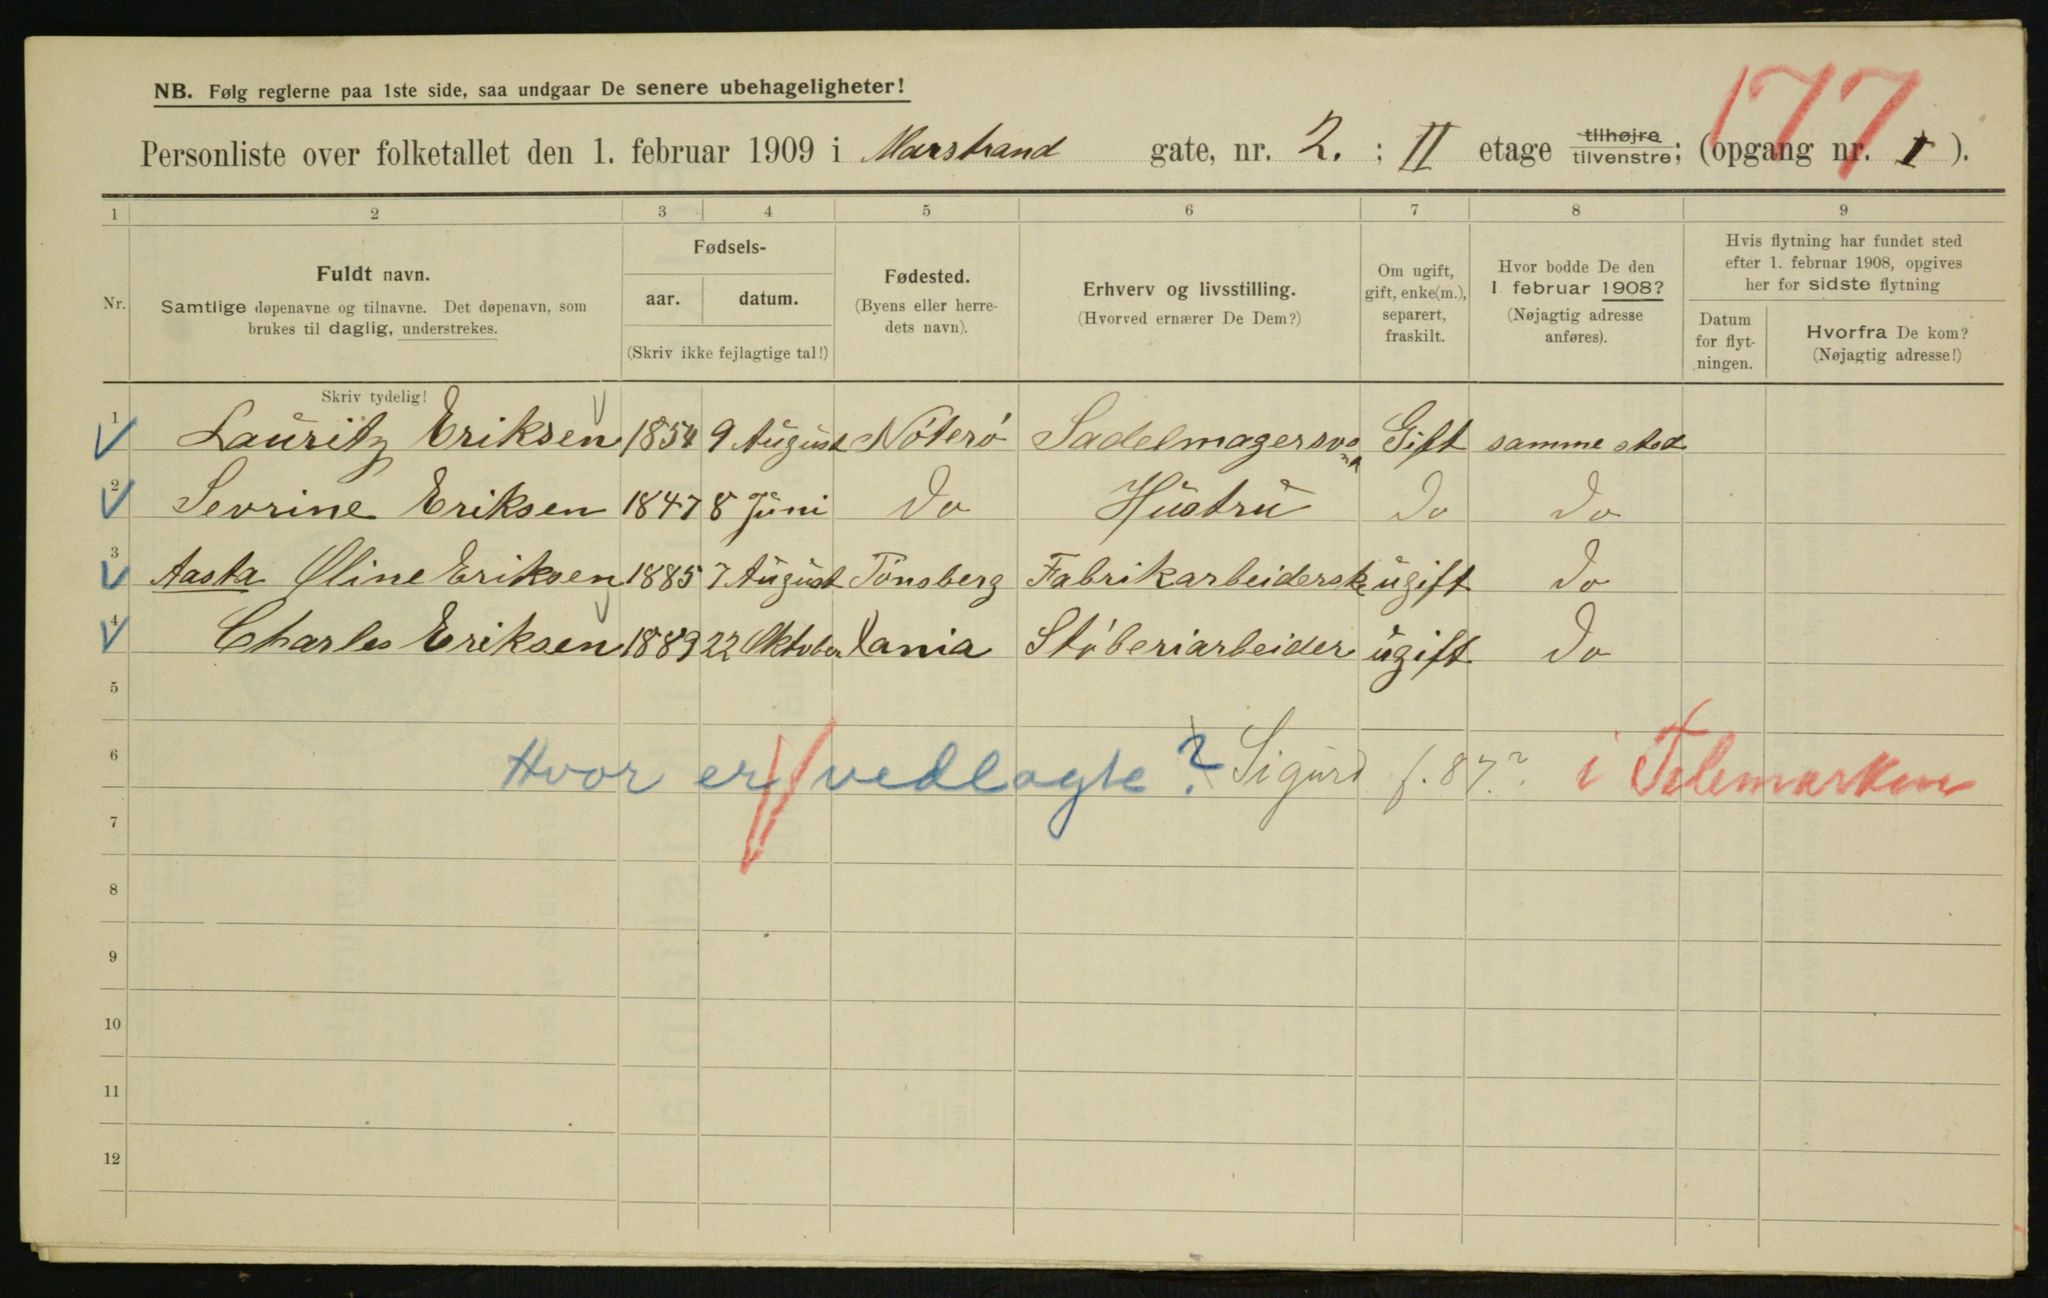 177
NB. Følg reglerne paa 1ste side, saa undgaar De senere ubehageligheter!
Personliste over folketallet den 1. februar 1909 i Marstrand gate, nr. 2. ; II etage tilhøjre tilvenstre; (opgang nr. 1 ).
1 2 3 4 5 6 7 8 9
Nr.
Fuldt navn.
Samtlige døpenavne og tilnavne. Det døpenavn, som
brukes til daglig, understrekes.
Fødsels-
aar. datum.
(Skriv ikke fejlagtige tal!)
Fødested.
(Byens eller herre-
dets navn).
Erhverv og livsstilling.
(Hvorved ernærer De Dem?)
Om ugift,
gift, enke(m.),
separert,
fraskilt.
Hvor bodde De den
1. februar 1908?
(Nøjagtig adresse
anføres).
Hvis flytning har fundet sted
efter 1. februar 1908, opgives
her for sidste flytning
Datum
for flyt-
ningen.
Hvorfra De kom?
(Nøjagtig adresse!)
Skriv tydelig!
1 Lauritz Eriksen 1854 9 August Nóteró Sadelmagersv Gift samme sted
2 Sevrine Eriksen 1847 8 Juni Do Hustru Do Do
3 Aasta Oline Eriksen 1885 7 August Tónsberg Fabrikarbeiderske ugift Do
4 Charles Eriksen 1889 22 Oktober Kania Stóberiarbeider ugift Do
5
6 Hvor er vedlagte? Sigurd f. 87.? i Telemarken
7
8
9
10
11
12